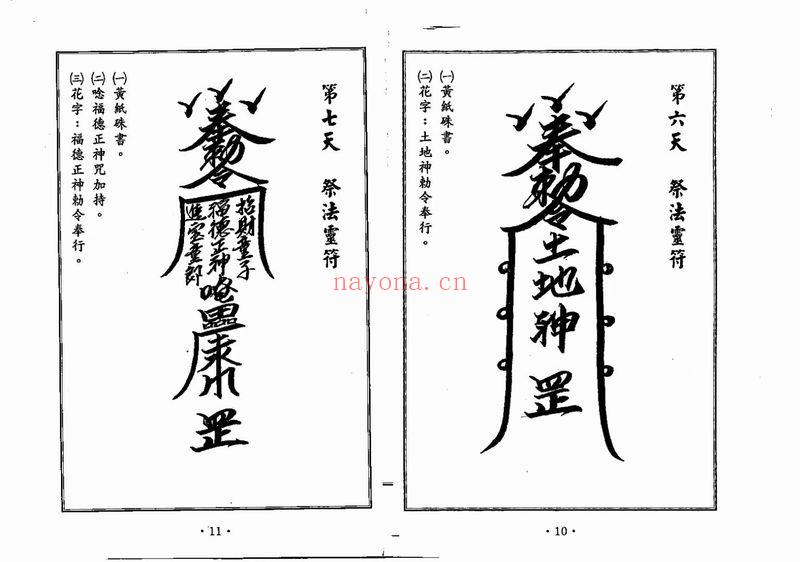 第六天　祭法靈符
㈠黃紙硃書。
㈡花字：土地神勅令奉行。
奉勅令
土地神
罡
·10·
第七天　祭法靈符
㈠黃紙硃書。
㈡唸福德正神咒加持。
㈢花字：福德正神勅令奉行。
奉勅令
招財童子
福德正神
進寶童郎
罡
·11·
nayona.cn